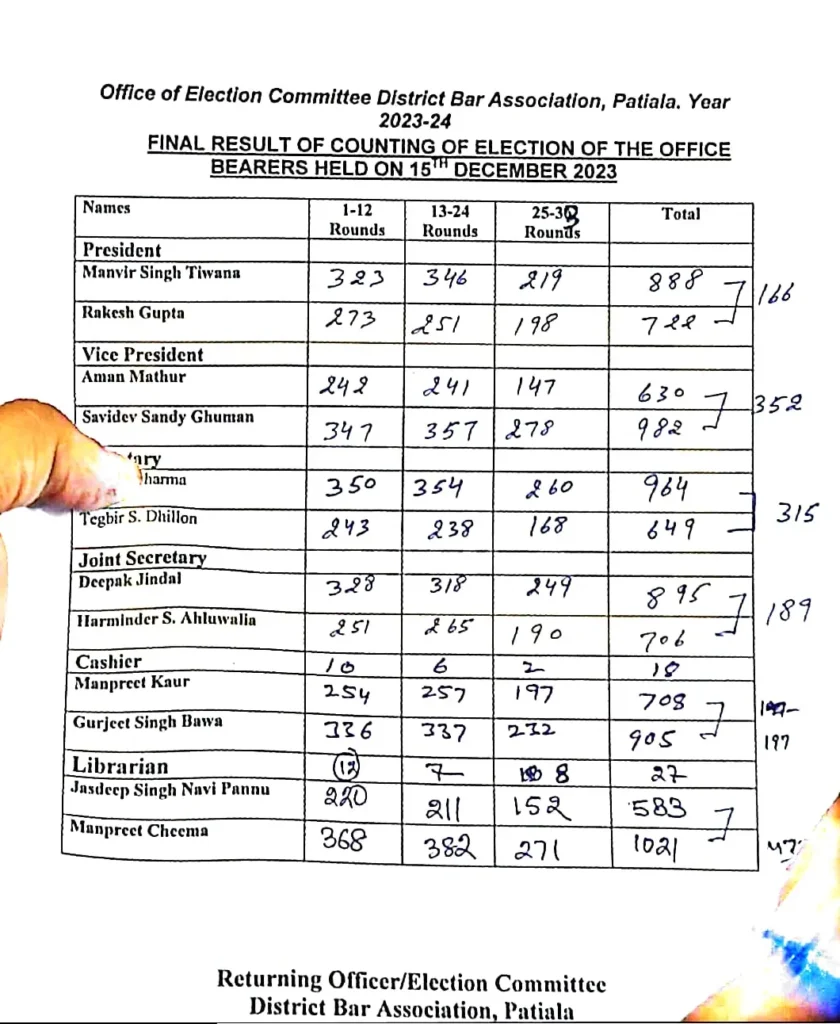 Office of Election Committee District Bar Association, Patiala. Year
2023-24
FINAL RESULT OF COUNTING OF ELECTION OF THE OFFICE
BEARERS HELD ON 15TH DECEMBER 2023
Names 1-12 Rounds 13-24 Rounds 25-33 Rounds Total
President
Manvir Singh Tiwana 323 346 219 888 166
Rakesh Gupta 273 251 198 722
Vice President
Aman Mathur 242 241 147 630 352
Savidev Sandy Ghuman 347 357 278 982
tary
harma 350 354 260 964 315
Tegbir S. Dhillon 243 238 168 649
Joint Secretary
Deepak Jindal 328 318 249 895 189
Harminder S. Ahluwalia 251 265 190 706
Cashier 10 6 2 18
Manpreet Kaur 254 257 197 708
Gurjeet Singh Bawa 336 337 232 905 197
Librarian 12 7 8 27
Jasdeep Singh Navi Pannu 220 211 152 583
Manpreet Cheema 368 382 271 1021
Returning Officer/Election Committee
District Bar Association, Patiala